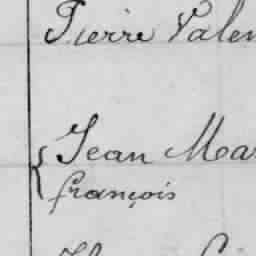 Pierre Valen
Jean Mar
françois